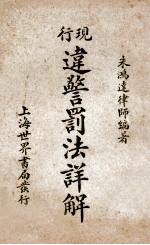 朱鴻達律師編著
現行
違警罰法詳解
上海世界書局發行